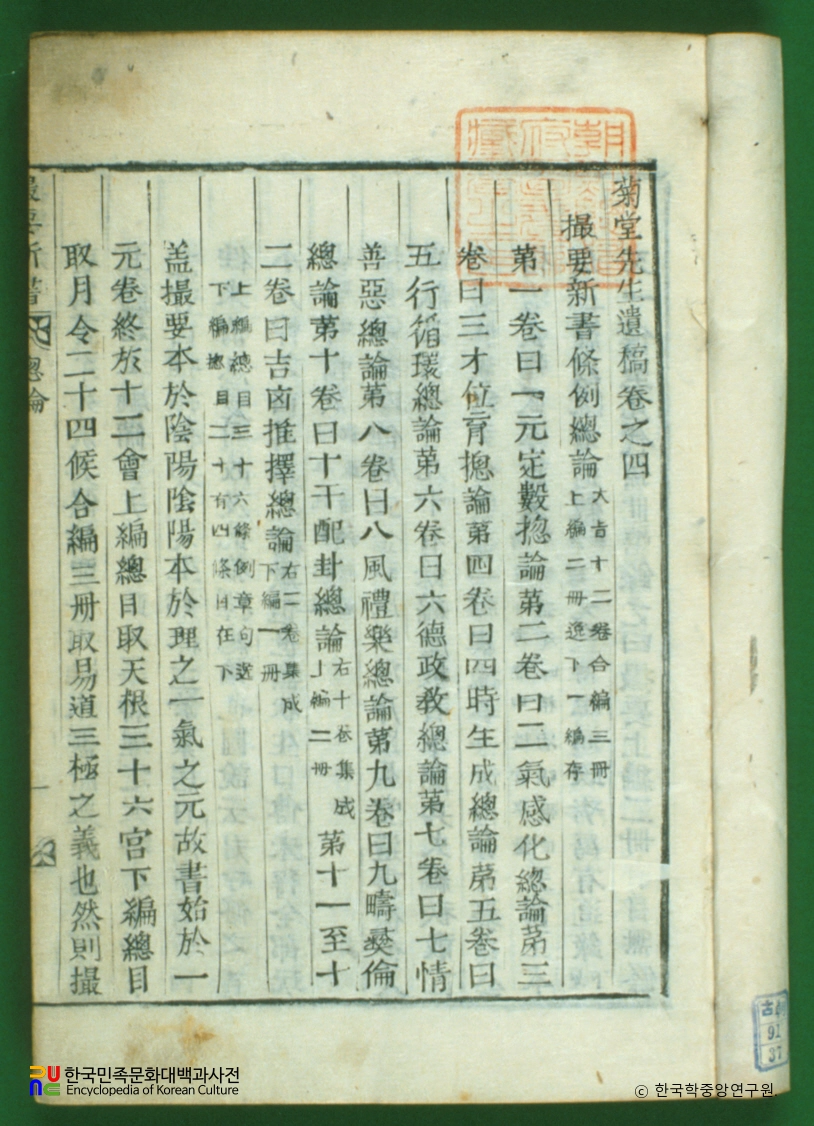 菊堂先生遺稿卷之四
撮要新書條例總論 大旨十二卷合編三冊 上編二冊逸下一編存
第一卷曰一元定數揔論第二卷曰二氣感化總論苐三
卷曰三才位育揔論第四卷曰四時生成總論苐五卷曰
五行循環總論第六卷曰六德政敎總論第七卷曰七情
善惡總論第八卷曰八風禮樂總論第九卷曰九疇彛倫
總論第十卷曰十干配卦總論 右十卷集成 上編二冊 第十一至十
二卷曰吉凶推擇總論 右二卷集成 下編一冊
上編總目三十六條例章句逸
下編總目二十有四條目在下
盖撮要本於陰陽陰陽本於理之一氣之元故書始於一
元卷終於十二會上編總目取天根三十六宮下編總目
取月令二十四候合編三冊取易道三極之義也然則撮
撮要新書
總論
一
古
91
37
한국민족문화대백과사전
Encyclopedia of Korean Culture
© 한국학중앙연구원.